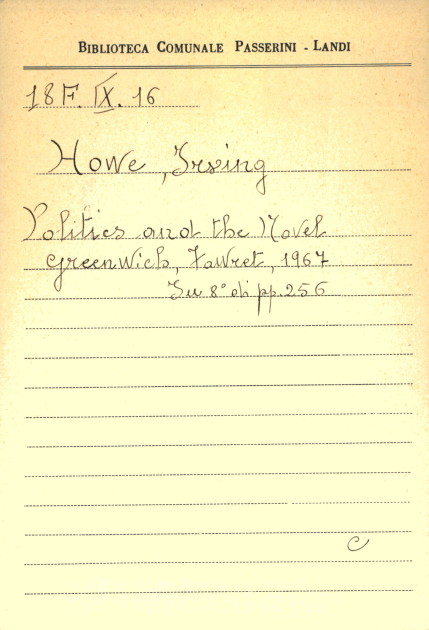 BIBLIOTECA COMUNALE PASSERINI - LANDI
18 F. IX. 16
Howe, Irving
Politics and the Novel
Greenwich, Fawret, 1967
In 8° di pp. 256
C